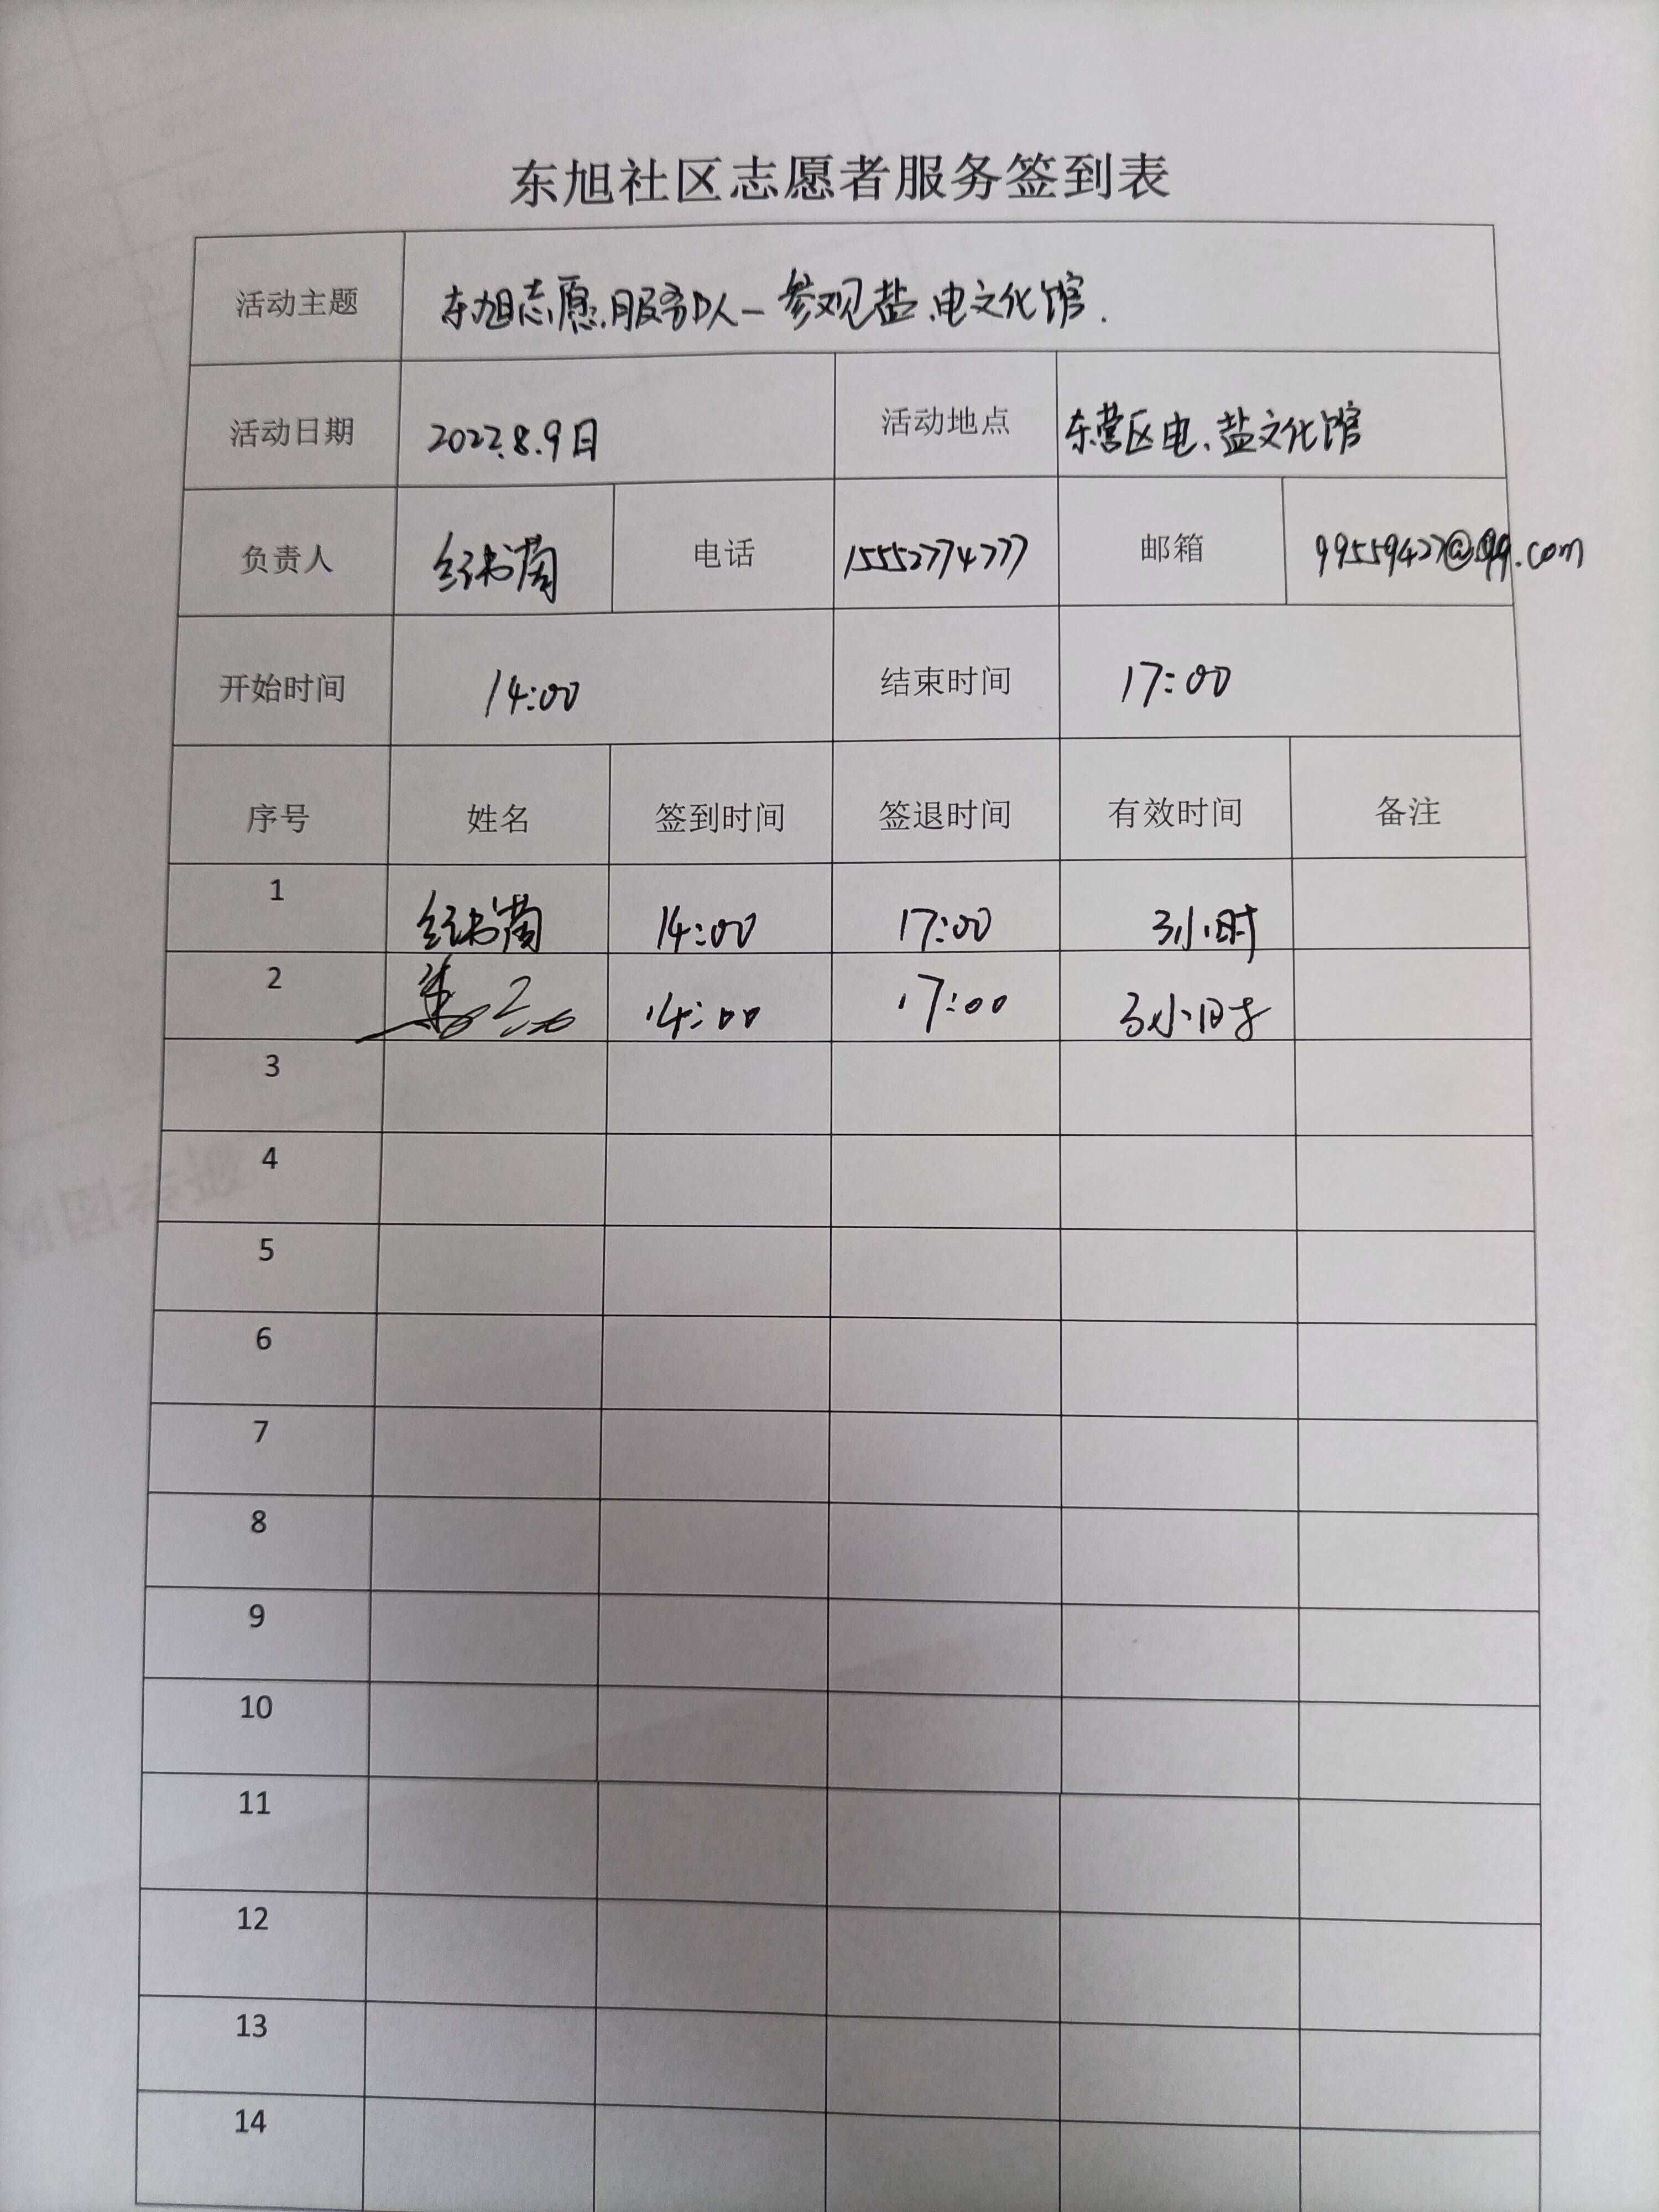 东旭社区志愿者服务签到表
活动主题 东旭志愿服务队一参观盐、电文化馆.
活动日期 2022.8.9日 活动地点 东营区电、盐文化馆
负责人 电话 15552774777 邮箱 99559427@qq.com
开始时间 14:00 结束时间 17:00
序号 姓名 签到时间 签退时间 有效时间 备注
1 14:00 17:00 3小时
2 14:00 17:00 3小时
3
4
5
6
7
8
9
10
11
12
13
14